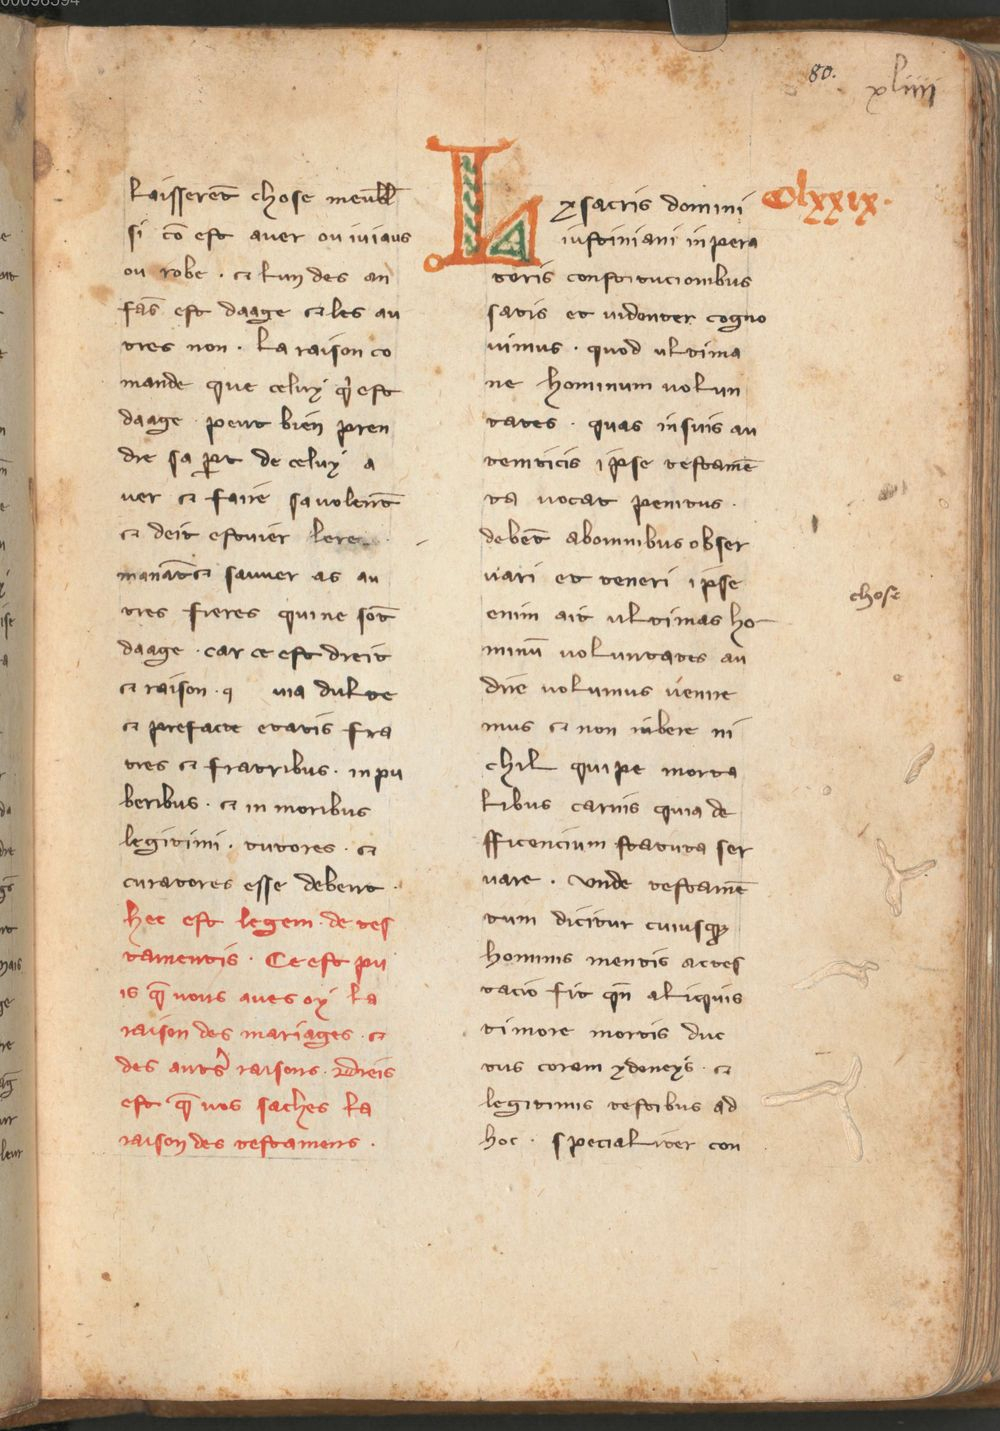 80.
xliiii
Laisserent̄ chose meubłł
si cō est aver ou iuiaus
ou robe . ⁊ lun des an
fās est daage ⁊ les au
tres non . La raison co
mande que celuy q̇ est
daage peut bien pren
dre sa ꝑt de celuy a
uer ⁊ faire sa volent̄
⁊ deit estuier lere
manāt ⁊ sauuer as au
tres freres qui ne sōt
daage . car ce est dreit
⁊ raison . q uia dulte
⁊ prefacte etatis fra
tres ⁊ fratribus . in pu
beribus . ⁊ in moribus
legitimi . tutores . ⁊
curatores esse debent .
hec est legem . de tes
tamentis . Ce est pu
is q̄ vous aues oy la
raison des mariages . ⁊
des autˢ raisons . Dreis
est q̄ vos saches la
raison des testamens .
Lx sacris domini
iustiniani inpera
toris constitucionibus
satis et uidenter cogno
uimus . quod ultima
ne hominum volun
tates . quas in suis au
tenticis ipse testamē
ta vocat penitus .
debēt ab omnibus obser
uari et teneri ipse
enim ait ultimas ho
minū voluntates au
dire volumus uenire
mus ⁊ non iubere ni
chil quipe morta
libus carius quia de
fficencium statuta ser
uare . vnde testamē
tum dicitur cuiusqꝫ
hominis mentis actes
tacio fit qn̄ aliquis
timore mortis duc
tus coram ydoneys . ⁊
legitimis testibus ad
hoc . specialiter con
Clxxix.
chose